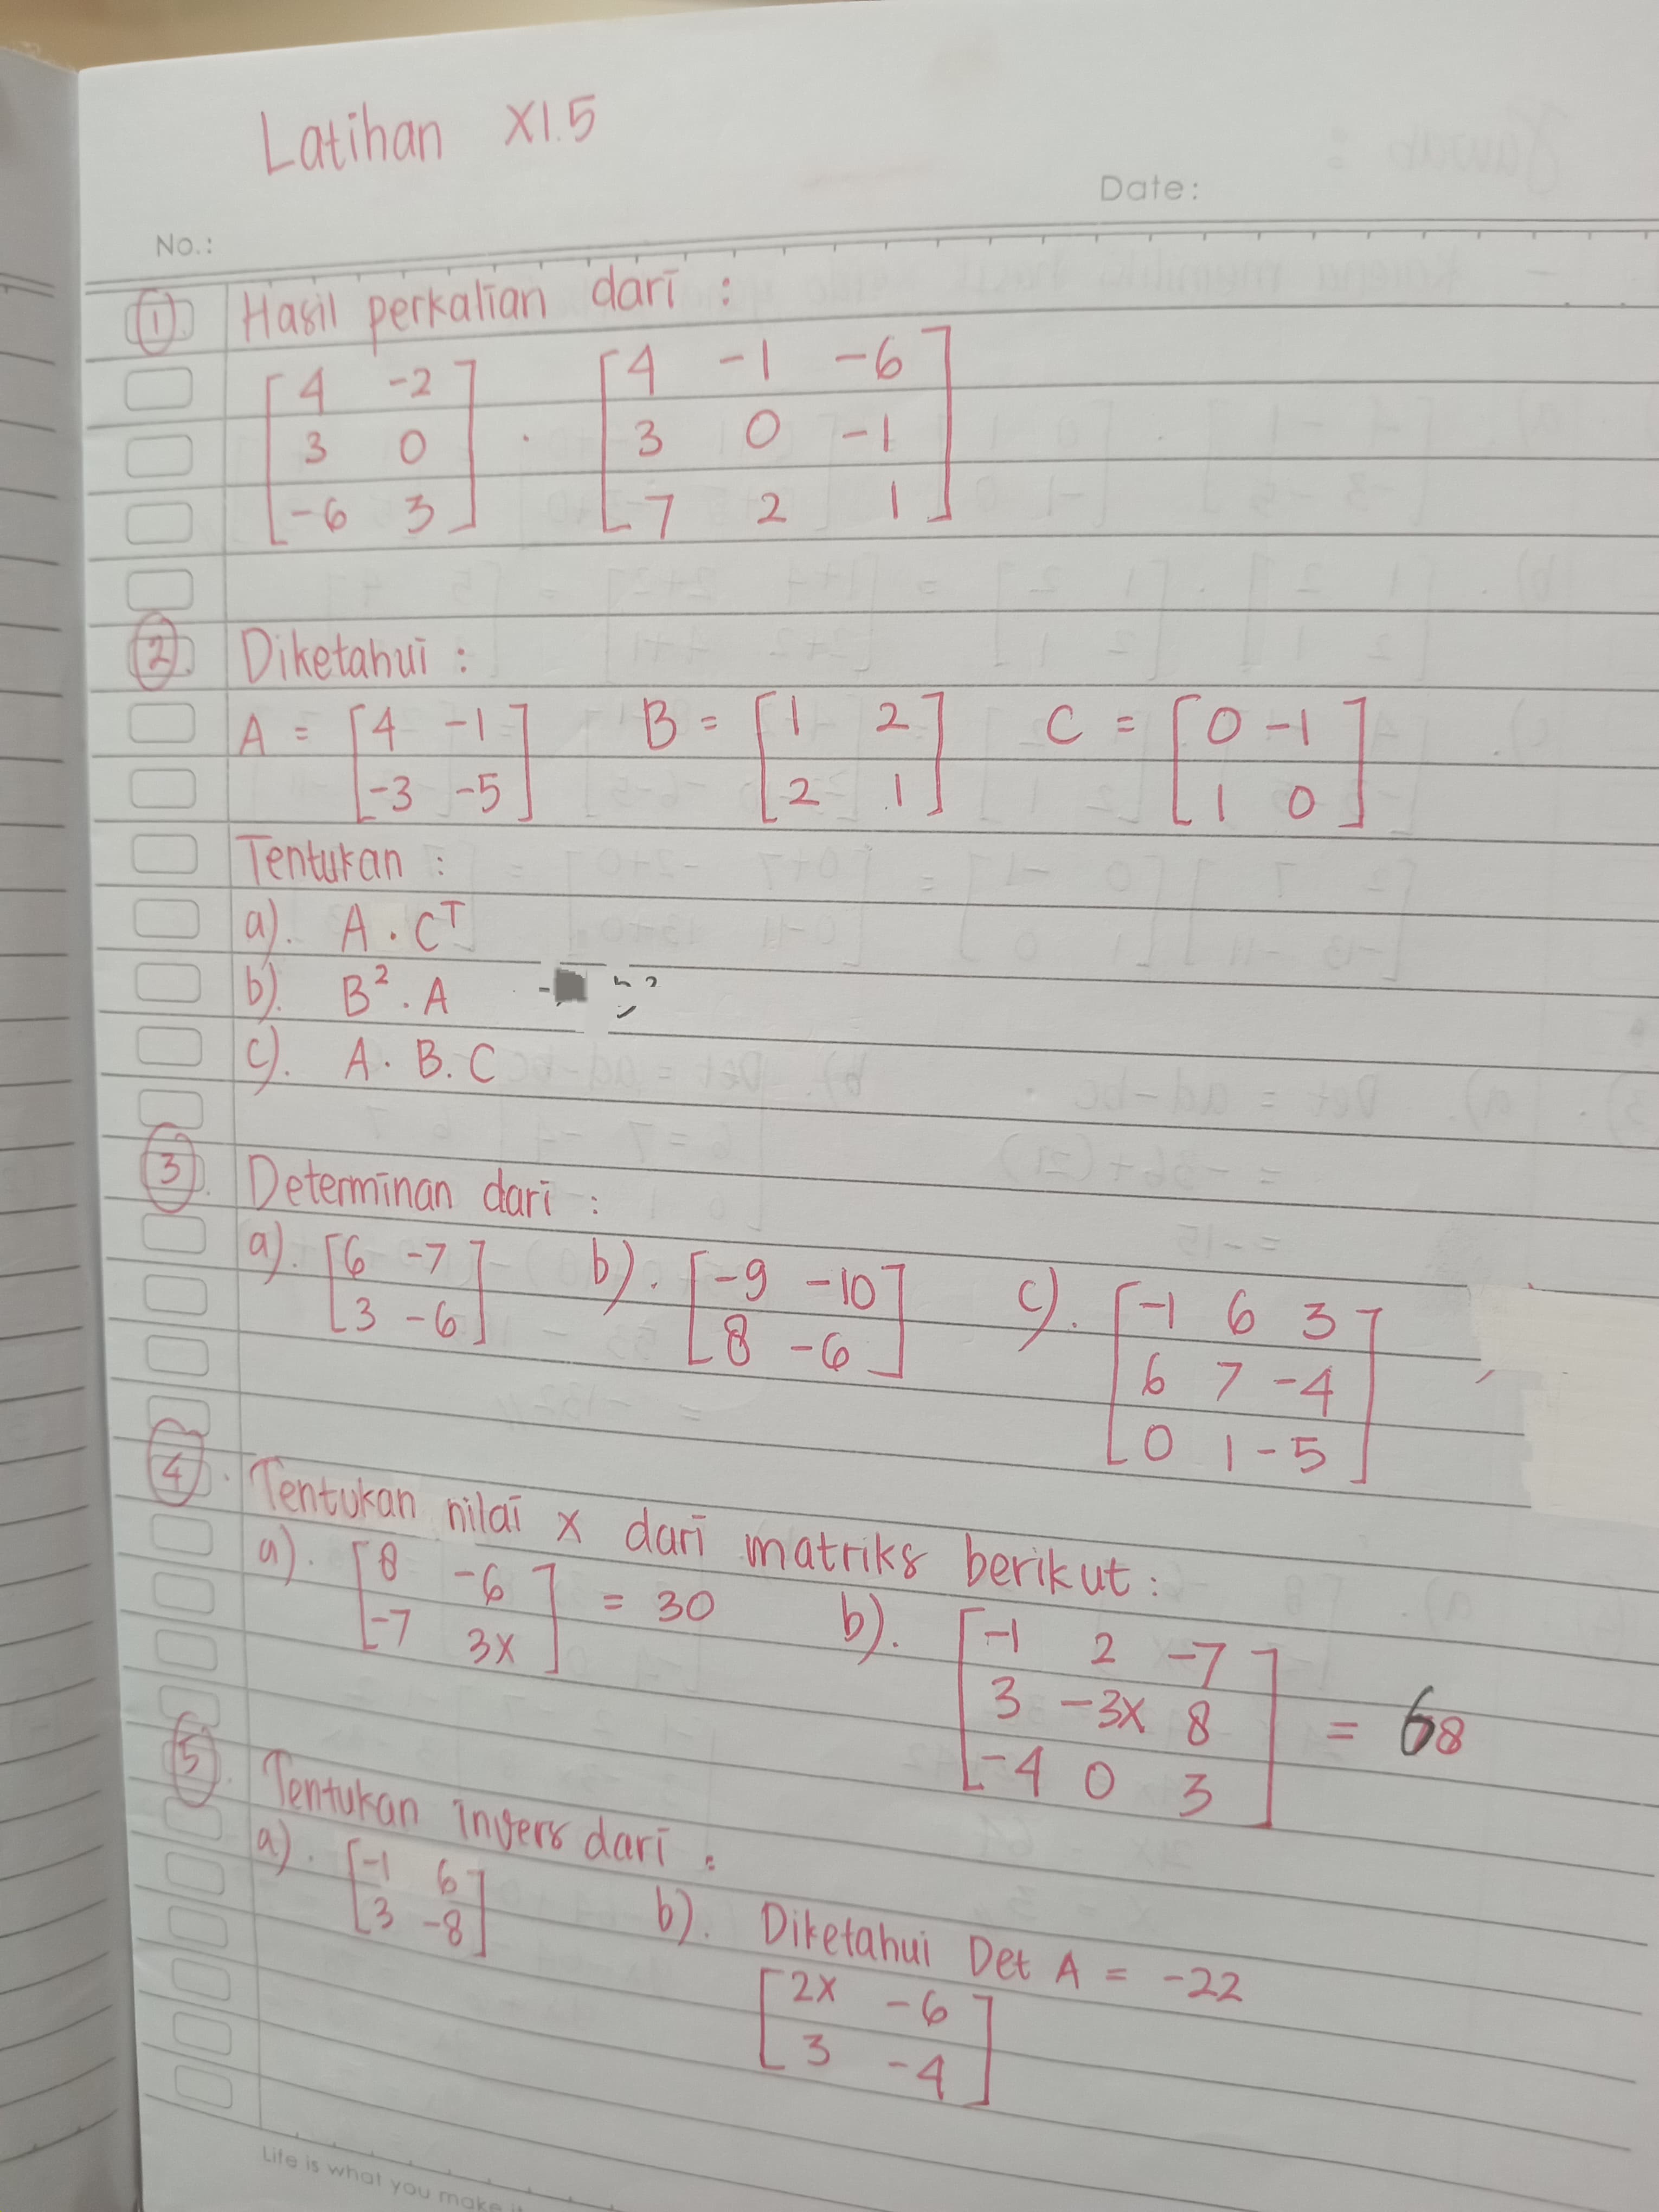 Latihan XI.5
Date:
No.:
1. Hasil perkalian dari :
[4 -2] . [4 -1 -6]
[3 0] [3 0 -1]
[-6 3] [-7 2 1]
2. Diketahui :
A = [4 -1] B = [1 2] C = [0 -1]
[-3 -5] [2 1] [1 0]
Tentukan :
a). A . Cᵀ
b). B² . A
c). A . B . C
3. Determinan dari :
a). [6 -7] b). [-9 -10] c). [-1 6 3]
[3 -6] [8 -6] [6 7 -4]
[0 1 -5]
4. Tentukan nilai x dari matriks berikut :
a). [8 -6] = 30 b). [-1 2 -7]
[-7 3x] [3 -3x 8] = 68
[-4 0 3]
5. Tentukan invers dari :
a). [-1 6] b). Diketahui Det A = -22
[3 -8] [2x -6]
[3 -4]
Life is what you make it